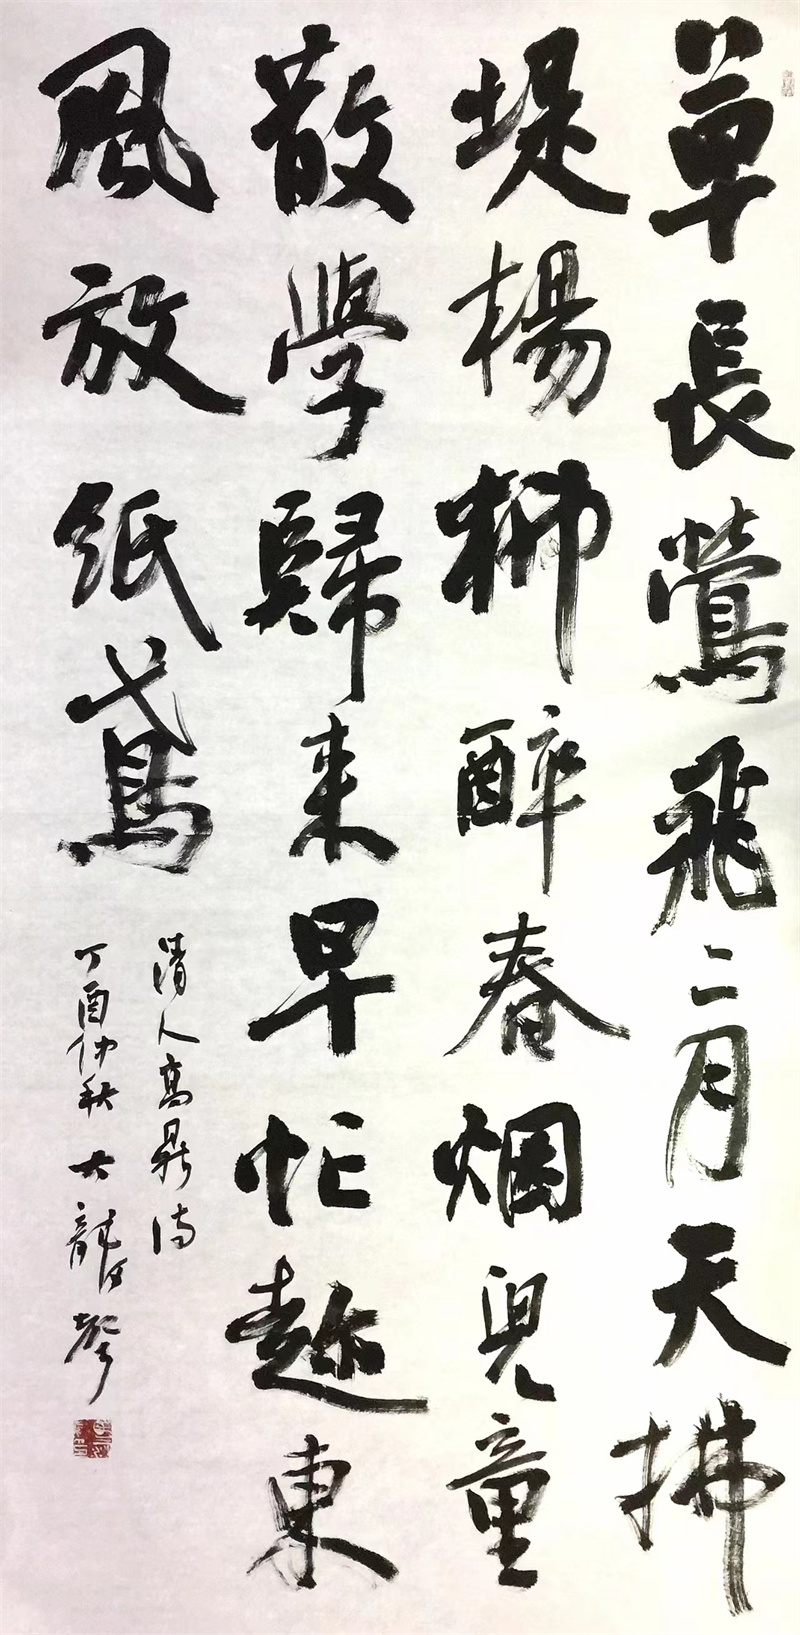 草長鶯飛二月天拂
堤楊柳醉春烟兒童
散學歸来早忙趂東
風放紙鳶
清人高鼎詩
丁酉仲秋大龍